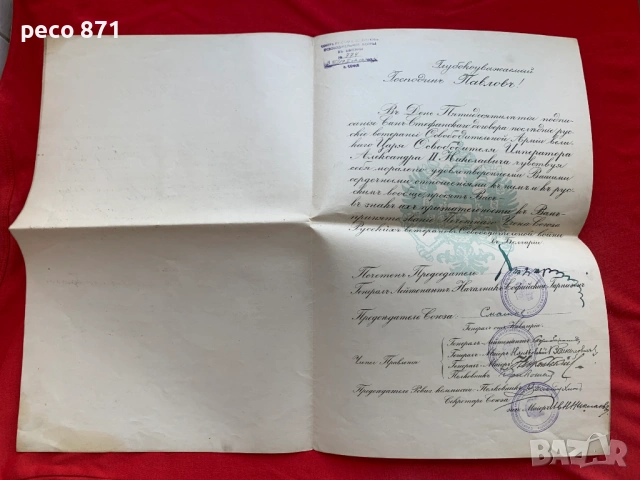 peco 871
№ 577
Глубокоуважаемый
Господинъ Павловъ!
Въ День Пятидесятилѣтія подпи-
санія Санъ-Стефанскаго договора послѣдніе рус-
скіе ветераны Освободительной Арміи вели-
каго Царя Освободителя Императора
Александра II Николаевича чувствуя
себя морально удовлетворенными Вашими
сердечными отношеніями къ нимъ и къ рус-
скимъ вообще просятъ Васъ
въ знакъ ихъ признательности къ Вамъ
принять званіе Почетнаго Члена Союза
Русскихъ ветерановъ Освободительной войны
въ Болгаріи
Почетный Председатель
Генералъ-Лейтенантъ, Начальникъ Софійскаго Гарнизона
Председатель Союза
Генералъ отъ Кавалеріи
Генералъ-Лейтенантъ
Генералъ-Маіоръ
Члены Правленія
Генералъ-Маіоръ
Полковникъ
Председатель Ревиз. комиссіи - Полковникъ
Секретарь Союза
BAZAR
bg